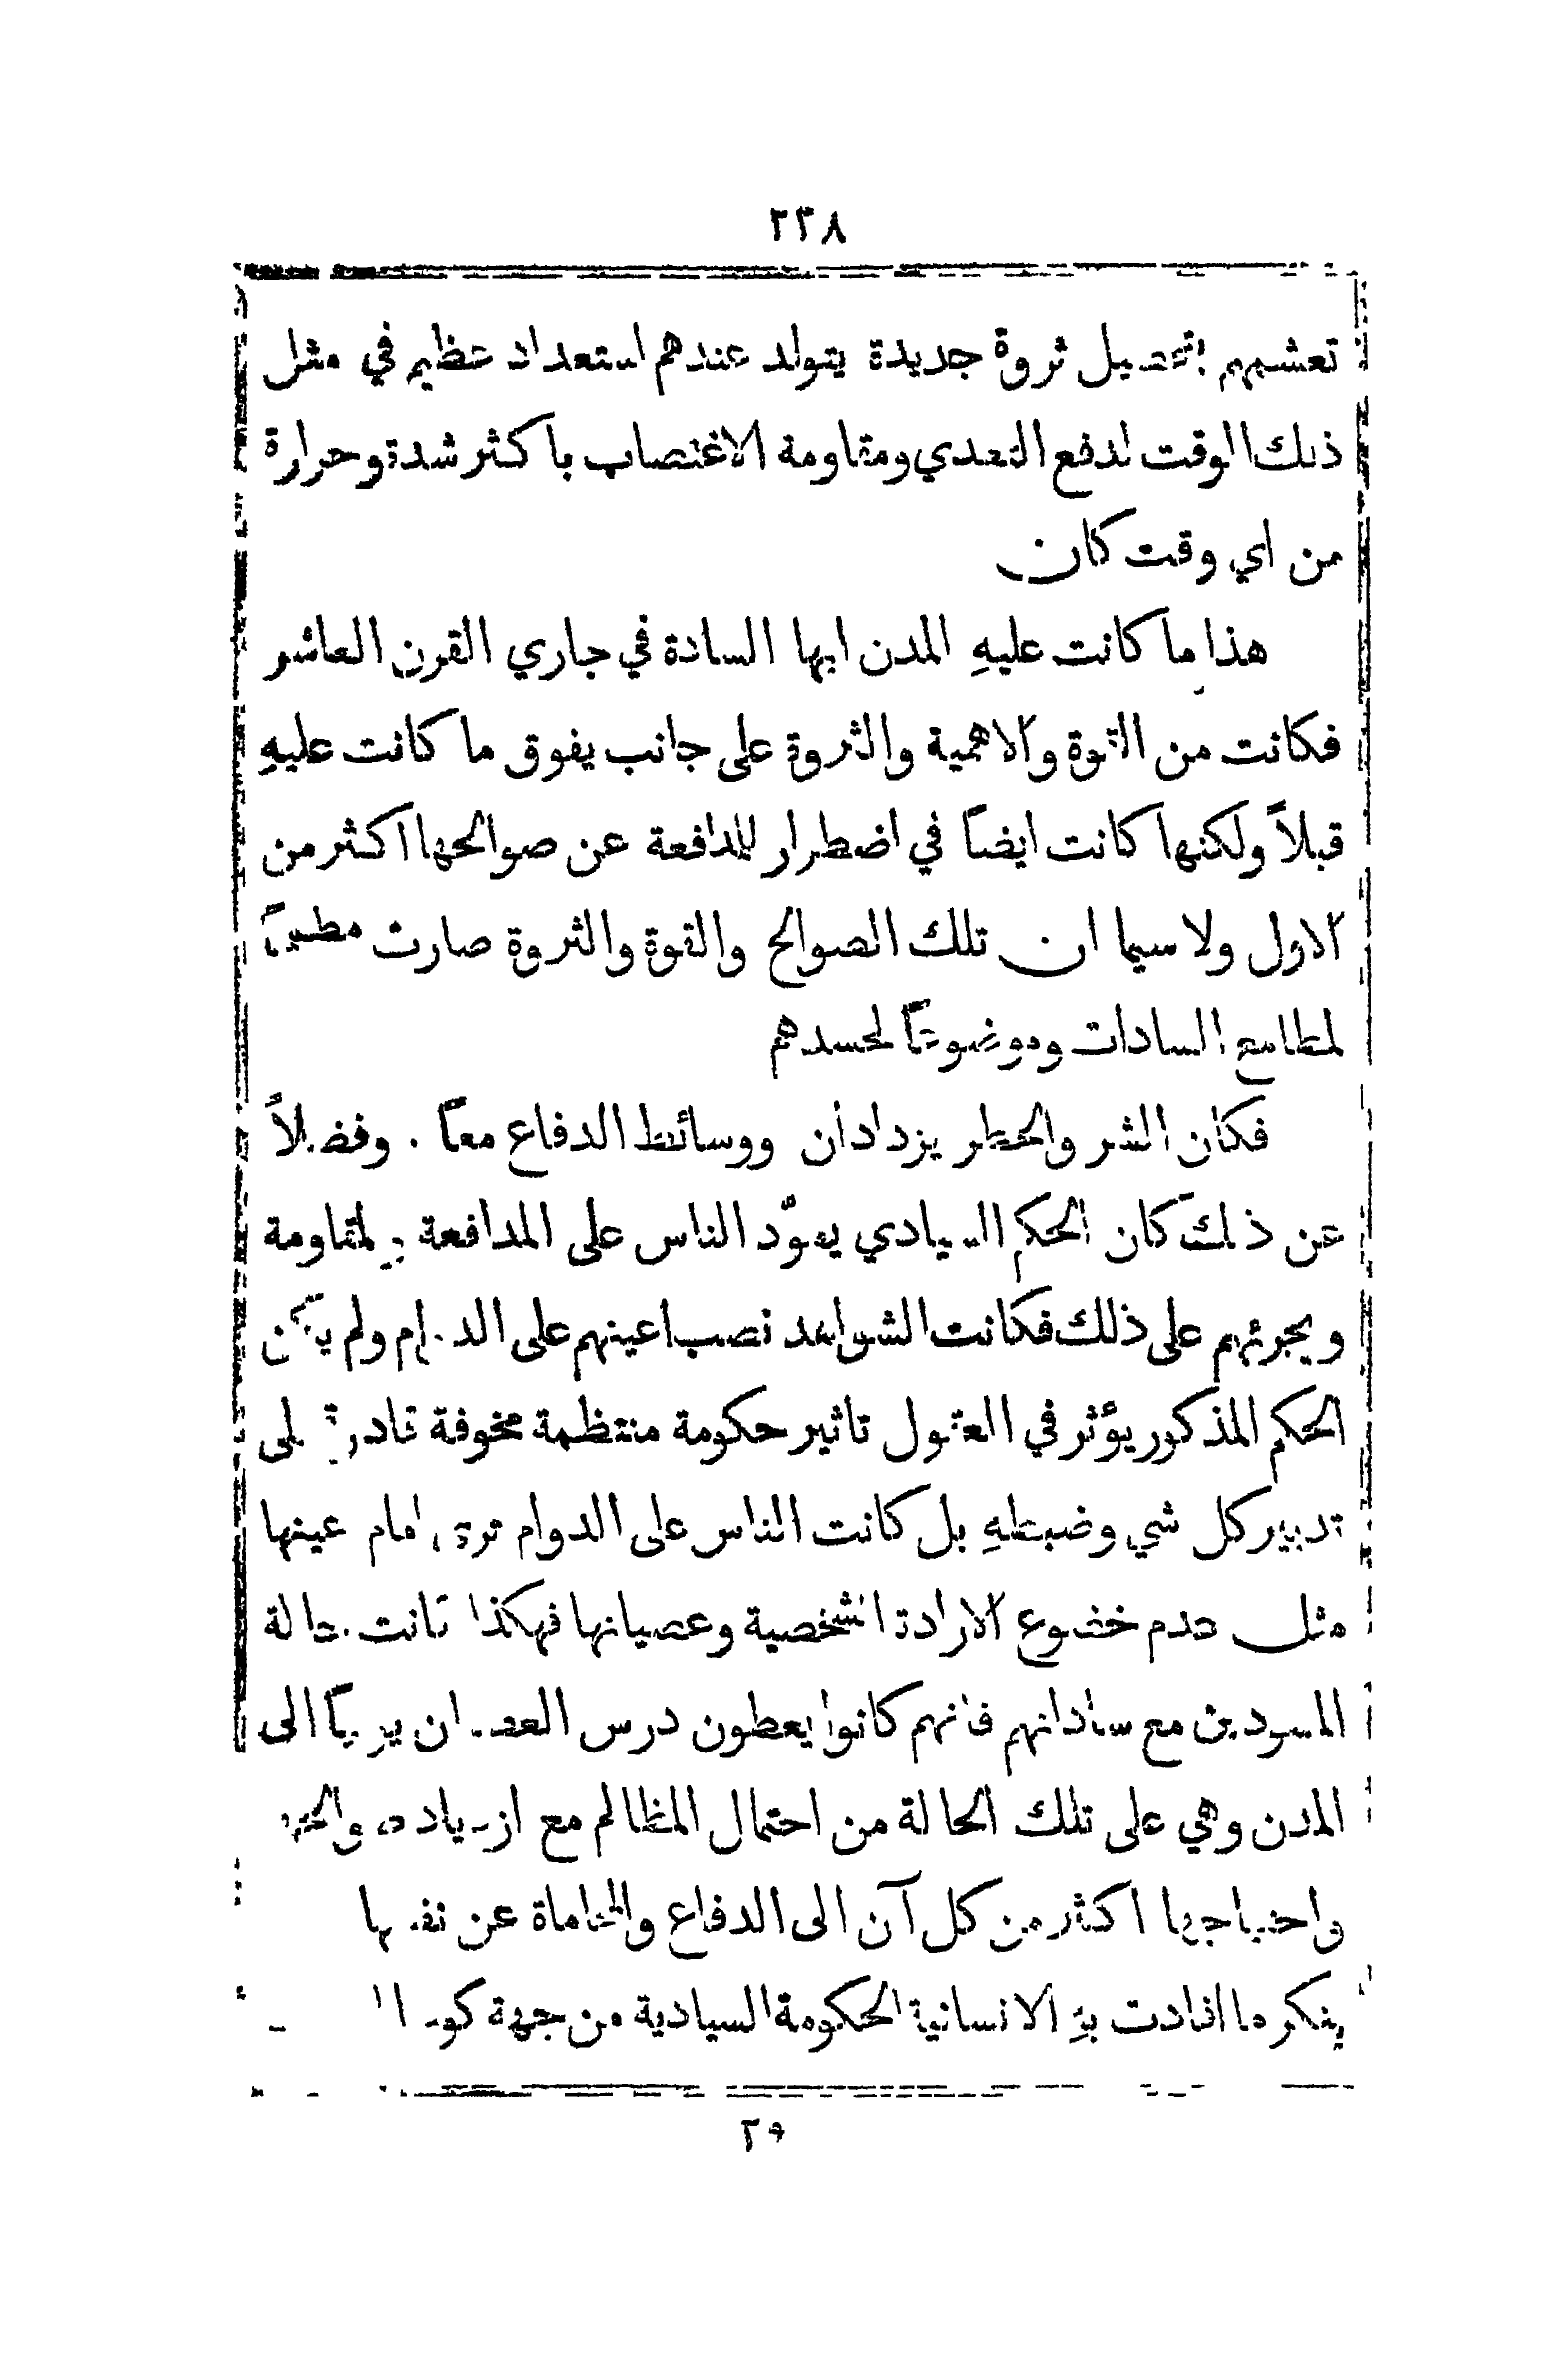 ٢٣٨
تعشمهم بتحصيل ثروة جديدة يتولد عندهم استعداد عظيم في مثل
ذلك الوقت لدفع التعدي ومقاومة الاغتصاب باكثر شدة وحرارة
من اي وقت كان
هذا ما كانت عليهِ المدن ايها السادة في جاري القرن العاشر
فكانت من القوة والاهمية والثروة على جانب يفوق ما كانت عليهِ
قبلاً ولكنها كانت ايضاً في اضطرار للمدافعة عن صوالحها اكثر من
الاول ولا سيما ان تلك الصوالح والقوة والثروة صارت مطمحاً
لمطامع السادات وموضوعاً لحسدهم
فكان الشر والخطر يزدادان ووسائط الدفاع معاً . وفضلاً
عن ذلك كان الحكم السيادي يعوّد الناس على المدافعة والمقاومة
ويجرئهم على ذلك فكانت الشواهد نصب اعينهم على الدوام ولم يكن
الحكم المذكور يؤثر في العقول تاثير حكومة منتظمة مخوفة قادرة على
تدبير كل شي وضبطهِ بل كانت الناس على الدوام ترى امام عينها
مثل عدم خضوع الارادة الشخصية وعصيانها فهكذا كانت حالة
المسودين مع ساداتهم فانهم كانوا يعطون درس العصيان يومياً الى
المدن وهي على تلك الحالة من احتمال المظالم مع ازدياد
واحتياجها اكثر من كل آن الى الدفاع والمحاماة عن نفسها
ينكر ما افادت بهِ الانسانية الحكومة السيادية من جهة
٢٩